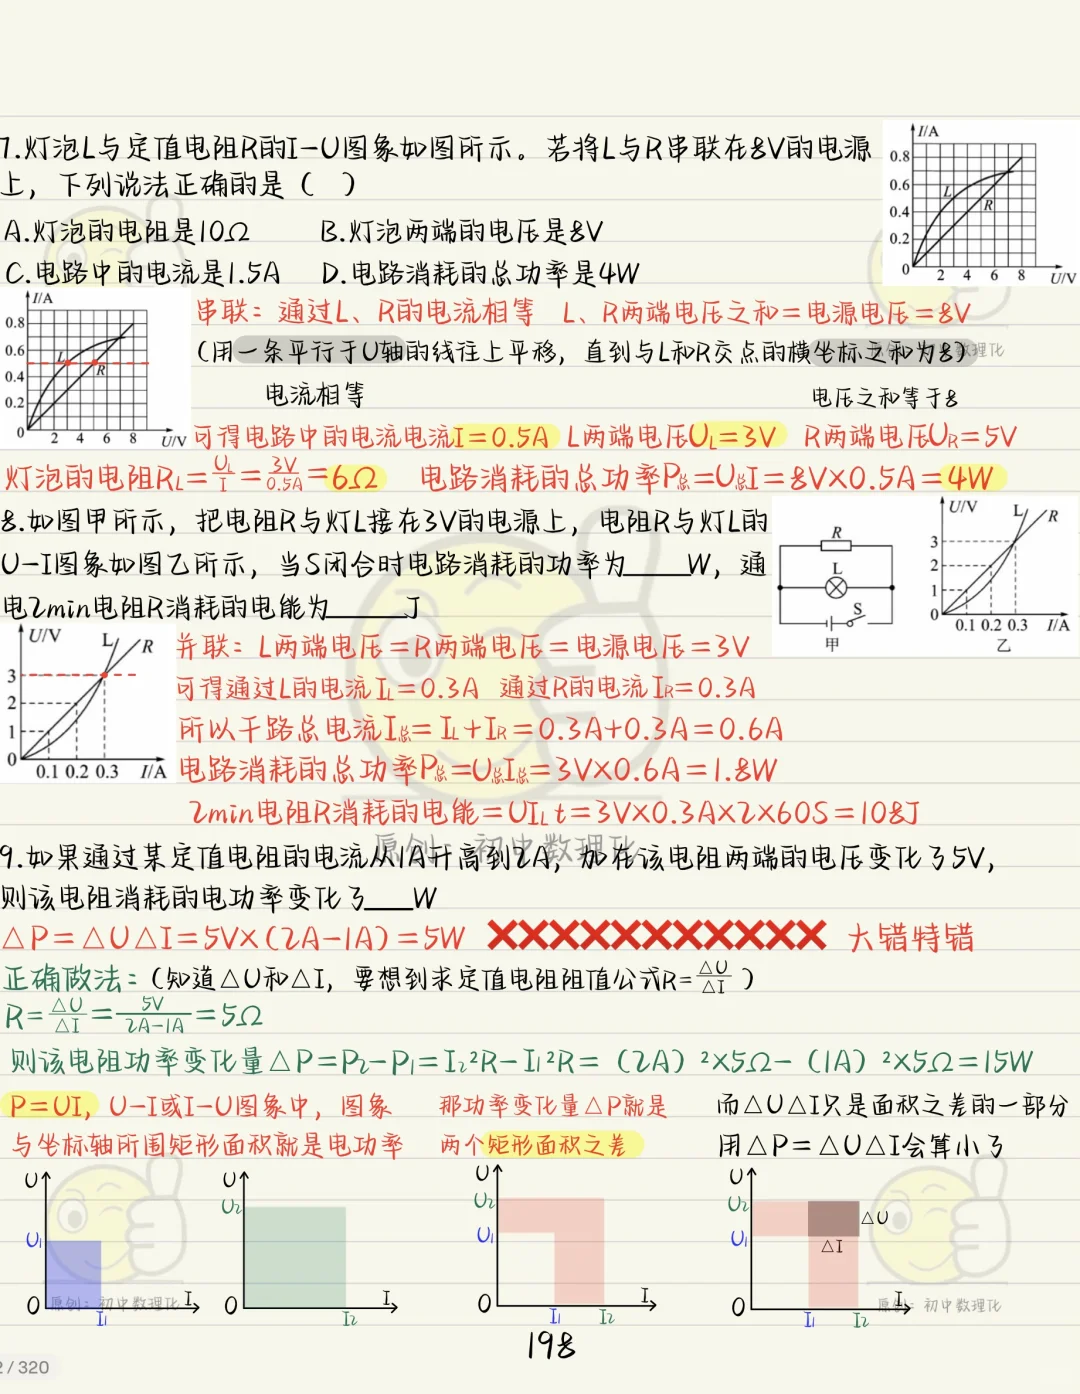 7.灯泡L与定值电阻R的I-U图象如图所示。若将L与R串联在8V的电源
上，下列说法正确的是（ ）
A.灯泡的电阻是10Ω B.灯泡两端的电压是8V
C.电路中的电流是1.5A D.电路消耗的总功率是4W
I/A
0.8
0.6
0.4
0.2
0
L
R
2 4 6 8 U/V
I/A
0.8
0.6
0.4
0.2
0
L
R
2 4 6 8 U/V
串联：通过L、R的电流相等 L、R两端电压之和=电源电压=8V
（用一条平行于U轴的线往上平移，直到与L和R交点的横坐标之和为8）
电流相等 电压之和等于8
可得电路中的电流电流I=0.5A L两端电压UL=3V R两端电压UR=5V
灯泡的电阻RL=UL/I=3V/0.5A=6Ω 电路消耗的总功率P总=U总I=8V×0.5A=4W
8.如图甲所示，把电阻R与灯L接在3V的电源上，电阻R与灯L的
U-I图象如图乙所示，当S闭合时电路消耗的功率为____W，通
电2min电阻R消耗的电能为____J
R
L
S
甲
U/V L R
3
2
1
0
0.1 0.2 0.3 I/A
乙
U/V L R
3
2
1
0
0.1 0.2 0.3 I/A
并联：L两端电压=R两端电压=电源电压=3V
可得通过L的电流IL=0.3A 通过R的电流IR=0.3A
所以干路总电流I总=IL+IR=0.3A+0.3A=0.6A
电路消耗的总功率P总=U总I总=3V×0.6A=1.8W
2min电阻R消耗的电能=UILt=3V×0.3A×2×60S=108J
原创：初中数理化
9.如果通过某定值电阻的电流从1A升高到2A，加在该电阻两端的电压变化了5V，
则该电阻消耗的电功率变化了___W
△P=△U△I=5V×(2A-1A)=5W ❌❌❌❌❌❌❌❌❌❌❌ 大错特错
正确做法：（知道△U和△I，要想到求定值电阻阻值公式R=△U/△I）
R=△U/△I=5V/2A-1A=5Ω
则该电阻功率变化量△P=P2-P1=I2²R-I1²R=（2A）²×5Ω-（1A）²×5Ω=15W
P=UI，U-I或I-U图象中，图象 那功率变化量△P就是 而△U△I只是面积之差的一部分
与坐标轴所围矩形面积就是电功率 两个矩形面积之差 用△P=△U△I会算小了
U
U1
0
I1
I
U
U2
0
I2
I
U
U2
U1
0
I1 I2
I
U
U2
U1
△U
△I
0
I1 I2
I
原创：初中数理化
原创：初中数理化
198
2 / 320